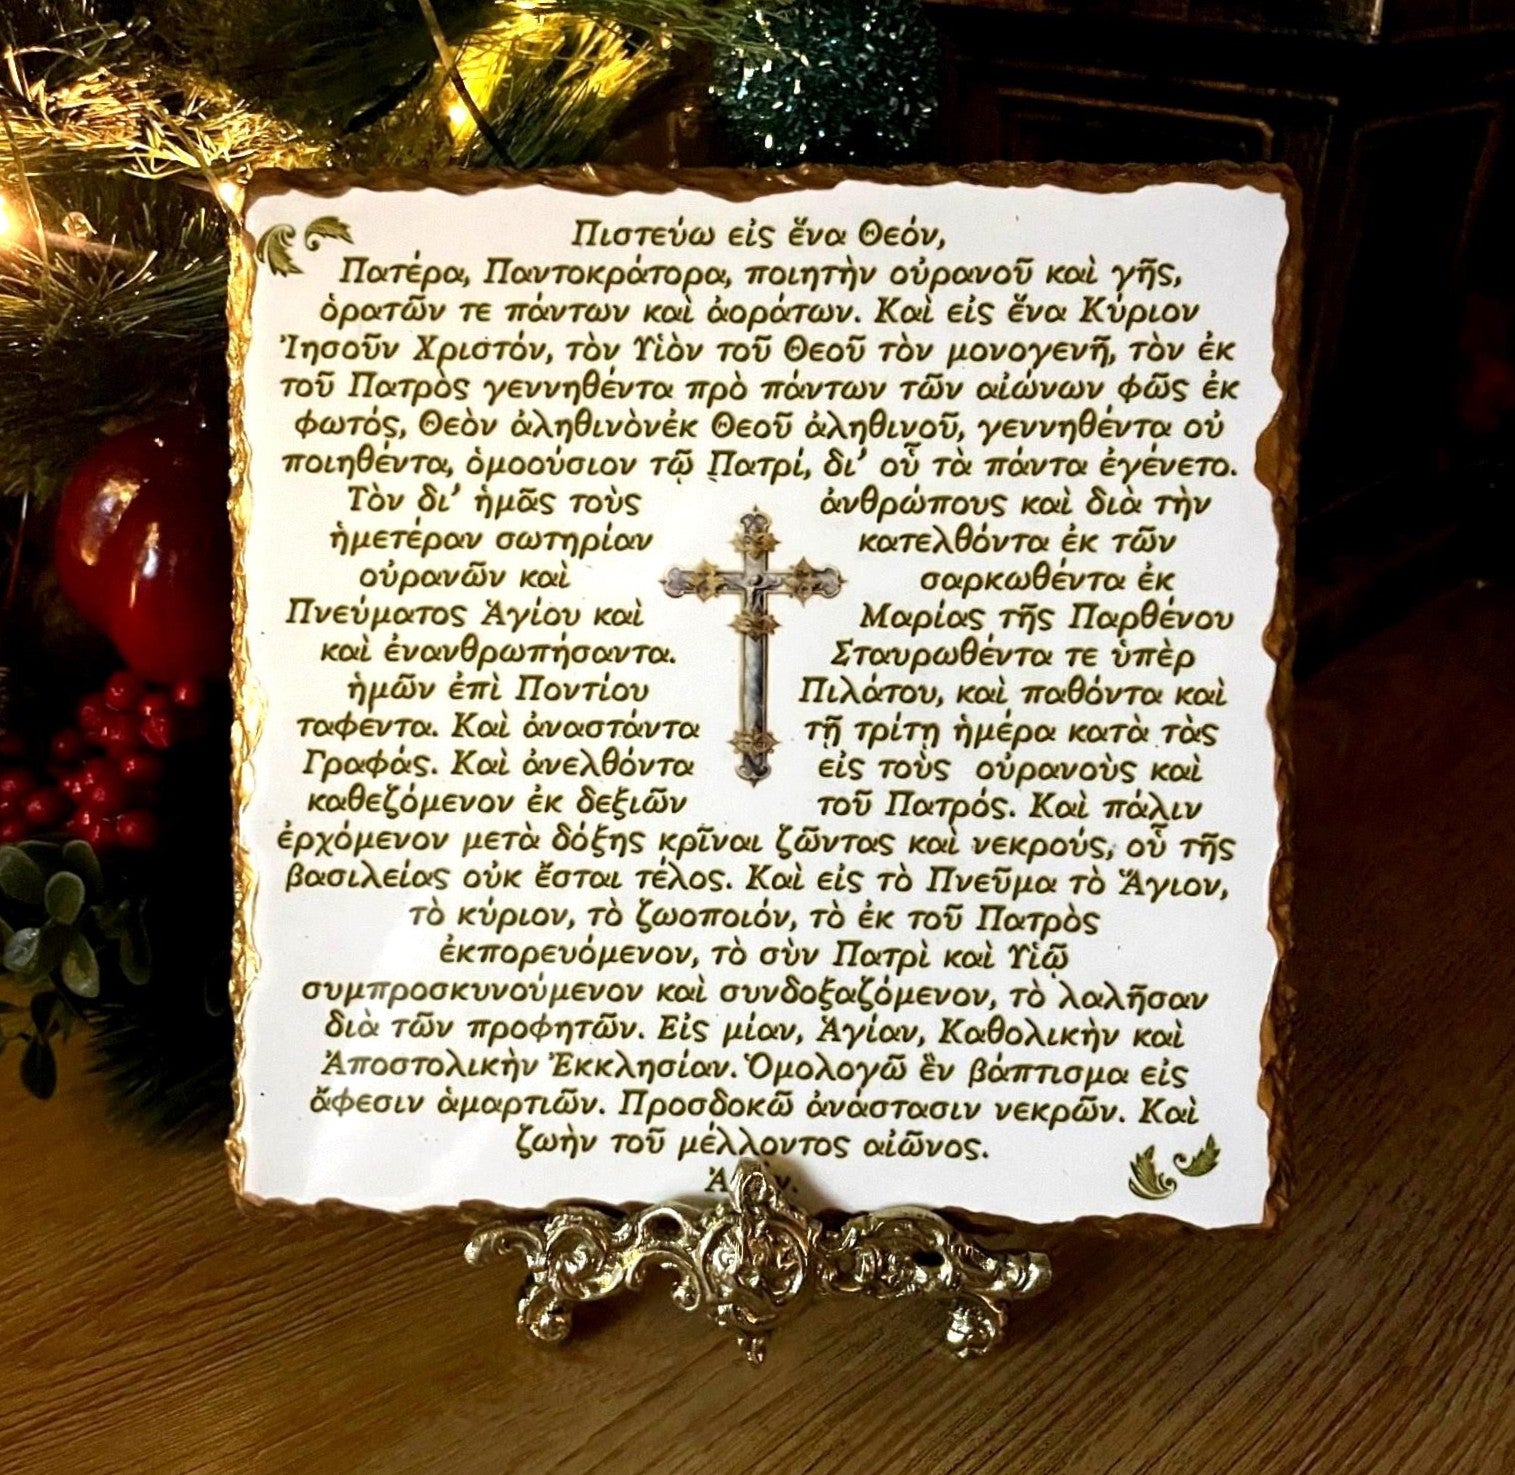 Πιστεύω εἰς ἕνα Θεόν,
Πατέρα, Παντοκράτορα, ποιητὴν οὐρανοῦ καὶ γῆς,
ὁρατῶν τε πάντων καὶ ἀοράτων. Καὶ εἰς ἕνα Κύριον
Ἰησοῦν Χριστόν, τὸν Υἱὸν τοῦ Θεοῦ τὸν μονογενῆ, τὸν ἐκ
τοῦ Πατρὸς γεννηθέντα πρὸ πάντων τῶν αἰώνων φῶς ἐκ
φωτός, Θεὸν ἀληθινὸνἐκ Θεοῦ ἀληθινοῦ, γεννηθέντα οὐ
ποιηθέντα, ὁμοούσιον τῷ Πατρί, δι' οὗ τὰ πάντα ἐγένετο.
Τὸν δι' ἡμᾶς τοὺς ἀνθρώπους καὶ διὰ τὴν
ἡμετέραν σωτηρίαν κατελθόντα ἐκ τῶν
οὐρανῶν καὶ σαρκωθέντα ἐκ
Πνεύματος Ἁγίου καὶ Μαρίας τῆς Παρθένου
καὶ ἐνανθρωπήσαντα. Σταυρωθέντα τε ὑπὲρ
ἡμῶν ἐπὶ Ποντίου Πιλάτου, καὶ παθόντα καὶ
ταφεντα. Καὶ ἀναστάντα τῇ τρίτῃ ἡμέρα κατὰ τὰς
Γραφάς. Καὶ ἀνελθόντα εἰς τοὺς οὐρανοὺς καὶ
καθεζόμενον ἐκ δεξιῶν τοῦ Πατρός. Καὶ πάλιν
ἐρχόμενον μετὰ δόξης κρῖναι ζῶντας καὶ νεκρούς, οὗ τῆς
βασιλείας οὐκ ἔσται τέλος. Καὶ εἰς τὸ Πνεῦμα τὸ Ἅγιον,
τὸ κύριον, τὸ ζωοποιόν, τὸ ἐκ τοῦ Πατρὸς
ἐκπορευόμενον, τὸ σὺν Πατρὶ καὶ Υἱῷ
συμπροσκυνούμενον καὶ συνδοξαζόμενον, τὸ λαλῆσαν
διὰ τῶν προφητῶν. Εἰς μίαν, Ἁγίαν, Καθολικὴν καὶ
Ἀποστολικὴν Ἐκκλησίαν. Ὁμολογῶ ἓν βάπτισμα εἰς
ἄφεσιν ἁμαρτιῶν. Προσδοκῶ ἀνάστασιν νεκρῶν. Καὶ
ζωὴν τοῦ μέλλοντος αἰῶνος.